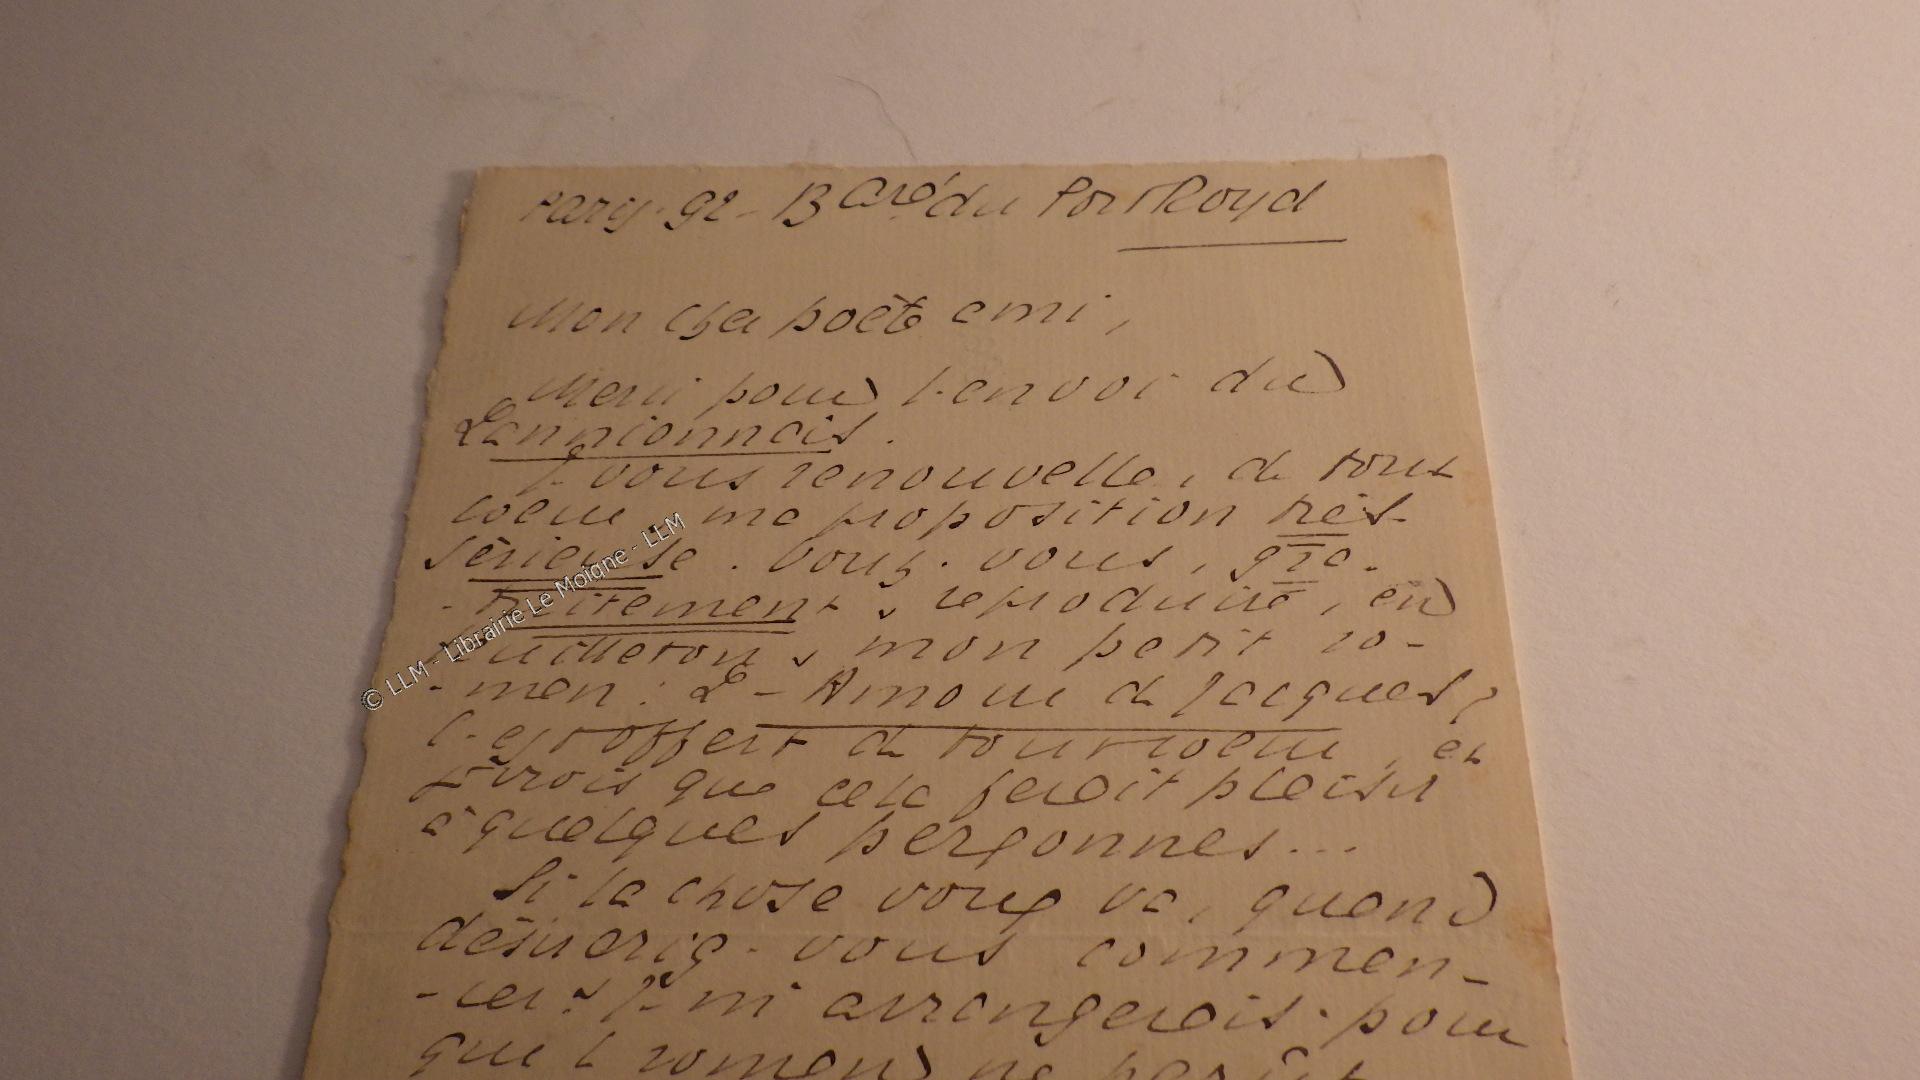 Paris. 92 - Bard du Port Royal
Mon cher poète ami,
Merci pour l'envoi du
Lannionnais.
Je vous renouvelle, de tout
coeur ma proposition très
sérieuse. Voulez-vous, gra-
-tuitement, reproduire, en
feuilleton, mon petit ro-
-man : L'Amour de Jacques?
C'est offert de tout coeur, et
je crois que cela ferait plaisir
à quelques personnes...
Si la chose vous va, quand
désireriez-vous commen-
-cer? Je m'arrangerais pour
que le roman ne parût
© LLM - Librairie Le Moigne - LLM